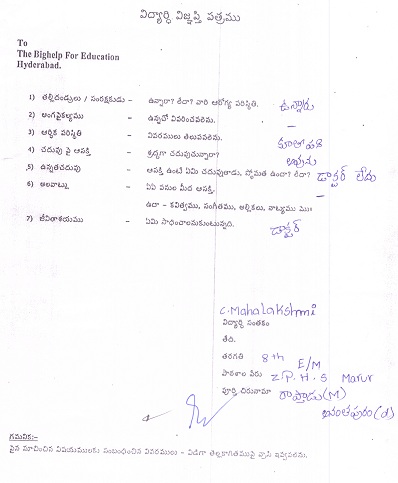 విద్యార్థి విజ్ఞప్తి పత్రము
To
The Bighelp For Education
Hyderabad.
1) తల్లిదండ్రులు / సంరక్షకుడు - ఉన్నారా? లేదా? వారి ఆరోగ్య పరిస్థితి. ఉన్నారు
2) అంగవైకల్యము - ఉన్నచో వివరించవలెను. —
3) ఆర్థిక పరిస్థితి - వివరములు తెలుపవలెను. కూలిపని
4) చదువు పై ఆసక్తి - శ్రద్ధగా చదువుచున్నారా? అవును
5) ఉన్నతచదువు - ఆసక్తి ఉంటే ఏమి చదువుతాడు, స్తోమత ఉందా? లేదా? డాక్టర్ లేదు
6) అలవాట్లు - ఏఏ పనుల మీద ఆసక్తి. —
ఉదా - కవిత్వము, సంగీతము, అల్లికలు, నాట్యము మొ॥
7) జీవితాశయము - ఏమి సాధించాలనుకుంటున్నది. డాక్టర్
C. Mahalakshmi
విద్యార్థి సంతకం
తేది.
తరగతి 8th E/M
పాఠశాల పేరు Z.P.H.S Marur
పూర్తి చిరునామా రాప్తాడు(M)
అనంతపురం(d)
గమనిక:-
పైన సూచించిన విషయములకు సంబంధించిన వివరములు - విడిగా తెల్లకాగితముపై వ్రాసి ఇవ్వవలెను.